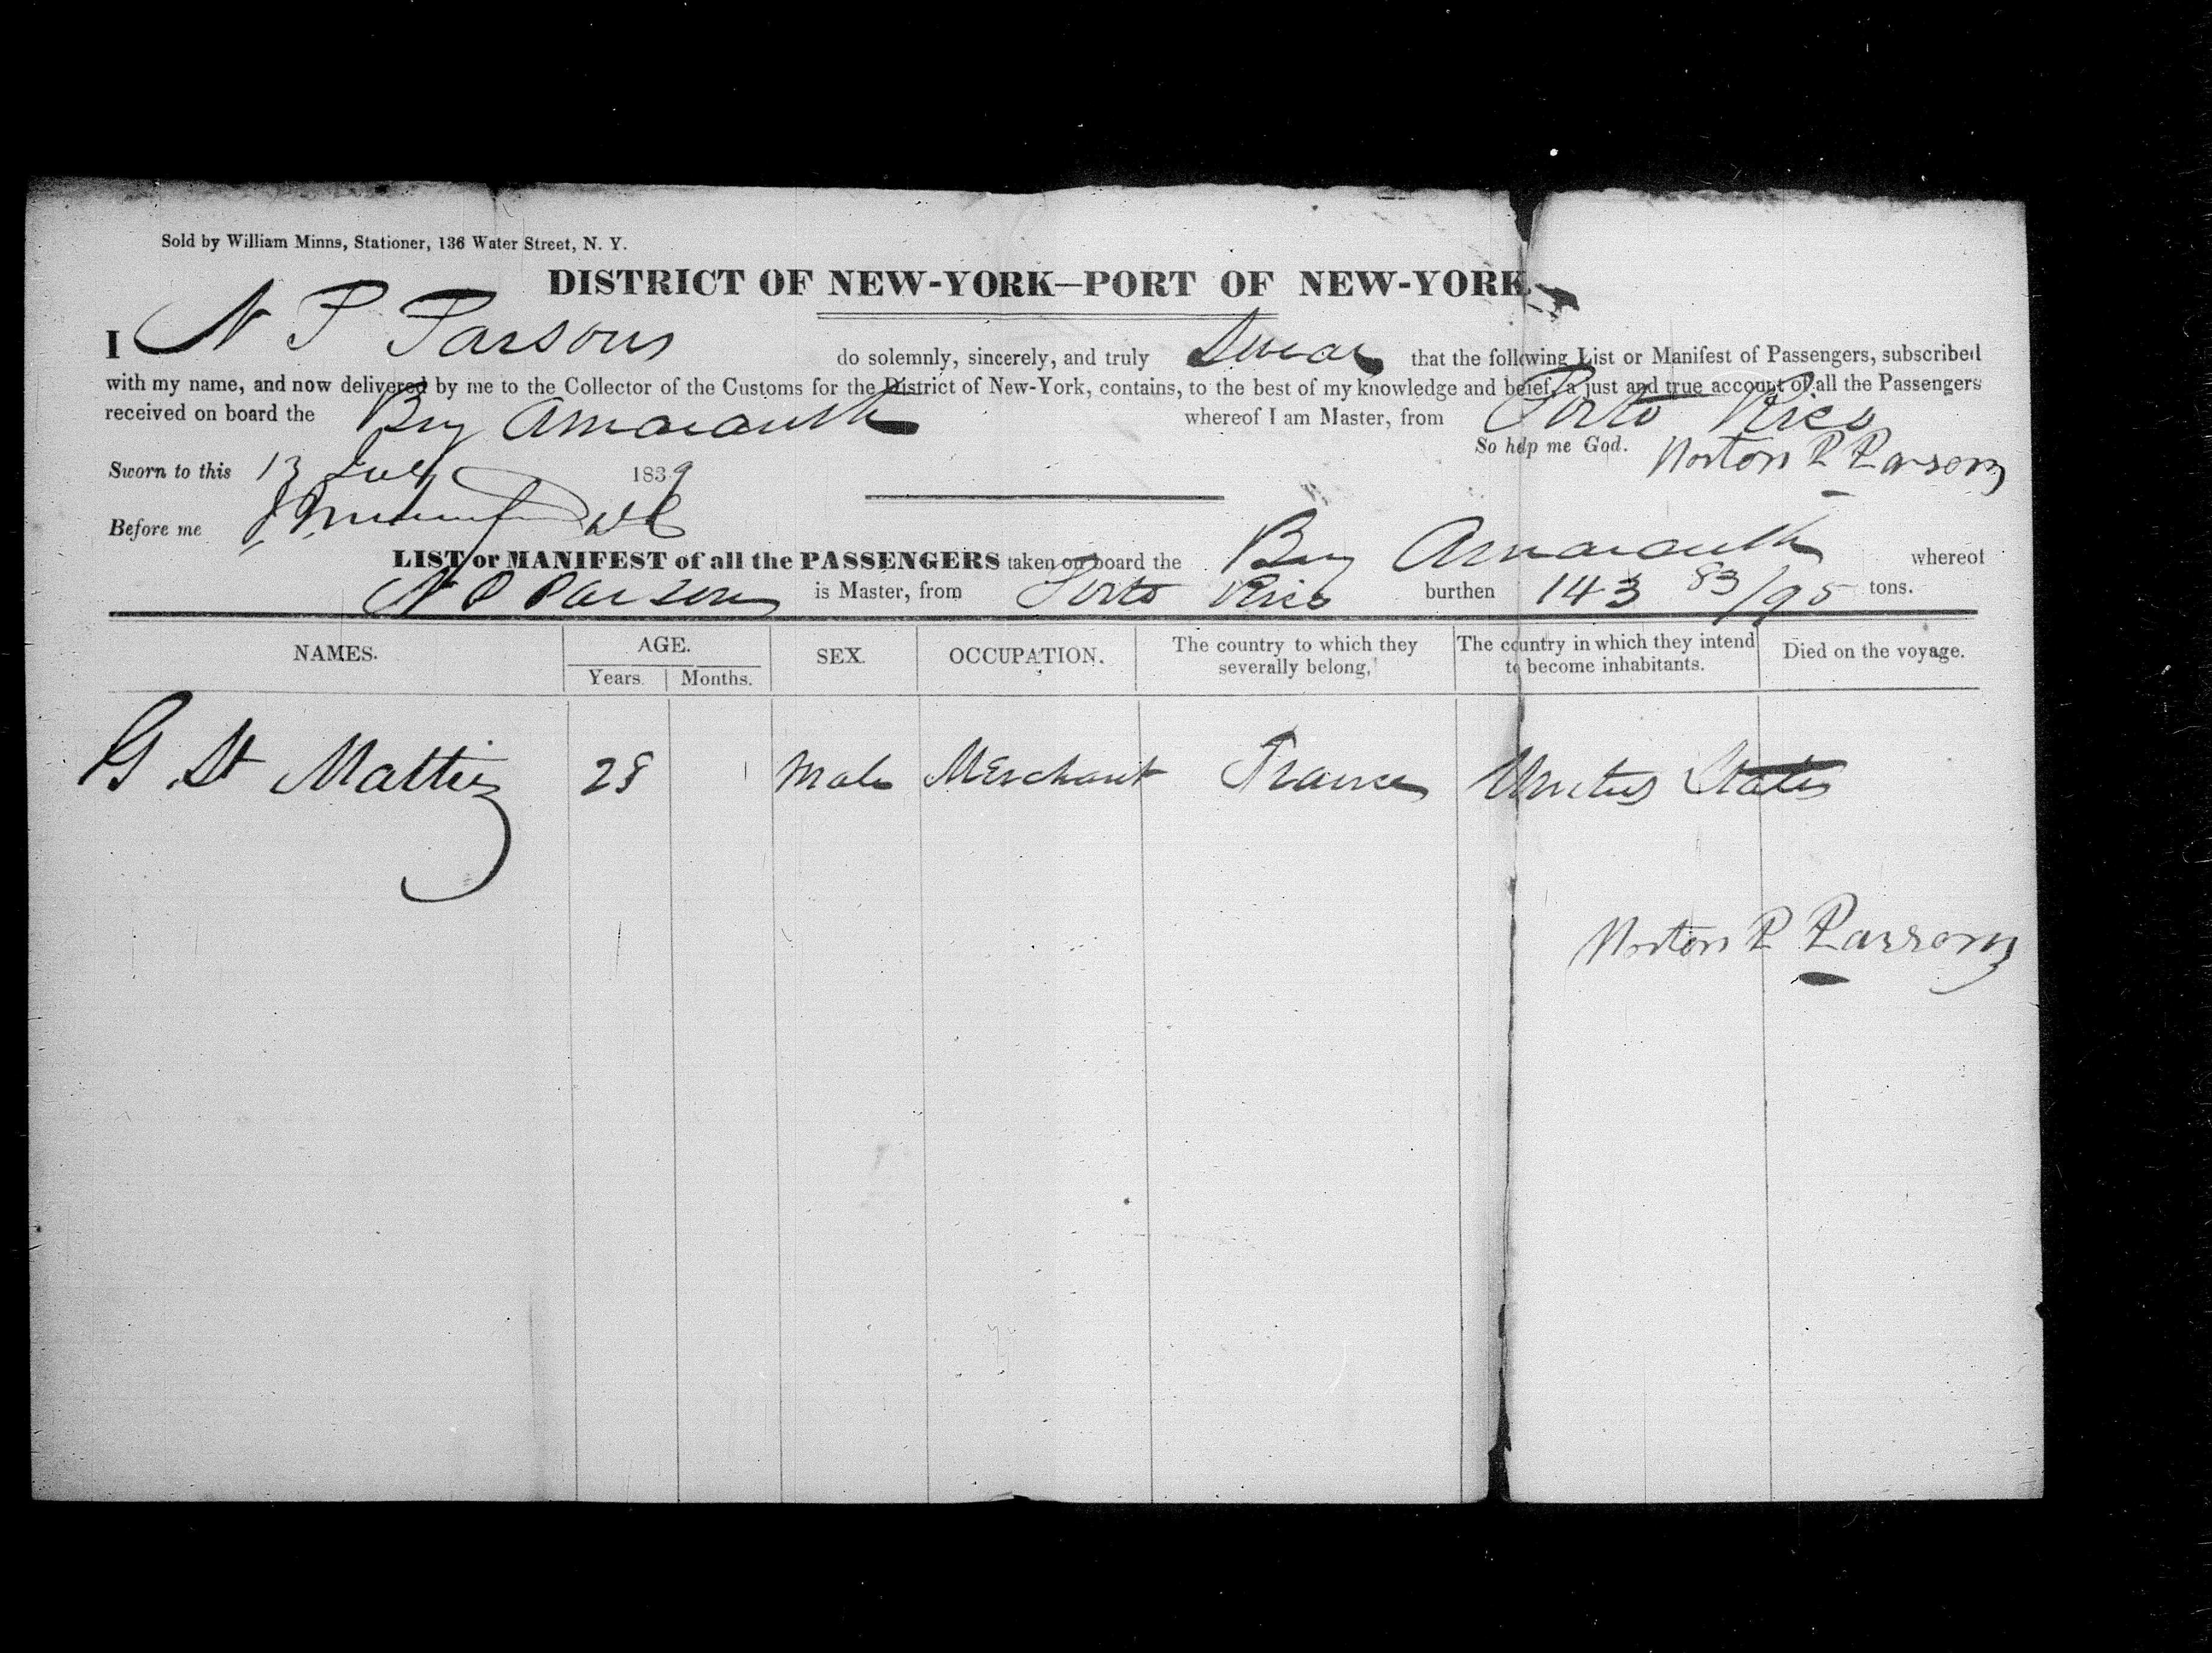 Sold by William Minns, Stationer, 136 Water Street, N. Y.
DISTRICT OF NEW-YORK—PORT OF NEW-YORK.
I N P Parsons do solemnly, sincerely, and truly Swear that the following List or Manifest of Passengers, subscribed
with my name, and now delivered by me to the Collector of the Customs for the District of New-York, contains, to the best of my knowledge and belief, a just and true account of all the Passengers
received on board the Brig Amaranth whereof I am Master, from Porto Rico
So help me God. Norton P Parsons
Sworn to this 13 July 1839
Before me
LIST or MANIFEST of all the PASSENGERS taken on board the Brig Amaranth whereof
N P Parsons is Master, from Porto Rico burthen 143 83/95 tons.
NAMES. AGE. SEX. OCCUPATION. The country to which they severally belong, The country in which they intend to become inhabitants. Died on the voyage.
Years. Months.
G St Mattiz 28 Male Merchant France United States
Norton P Parsons